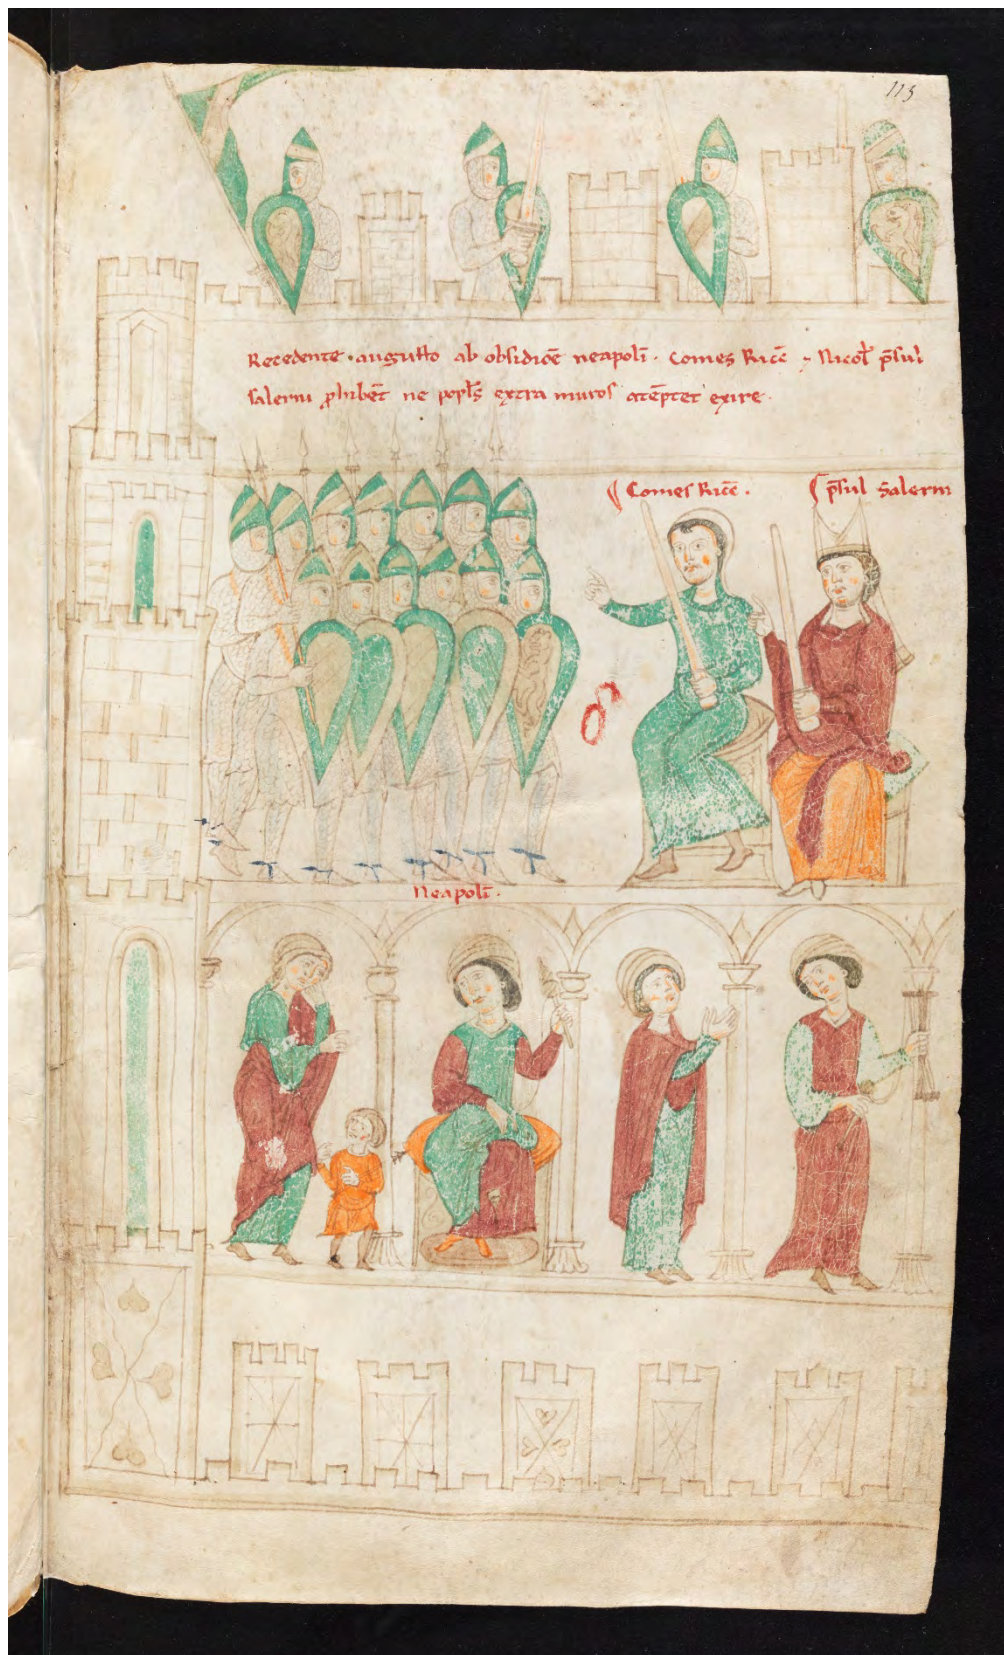 113
Recedente · augusto ab obsidiōe neapolī · Comes Ricc̄ ⁊ Nicol̄ p̄sul
salerni ꝓhibēt ne popl̄s extra muros atēptet exire ·
Comes Ricc̄ ·
p̄sul Salerni
Neapolī ·